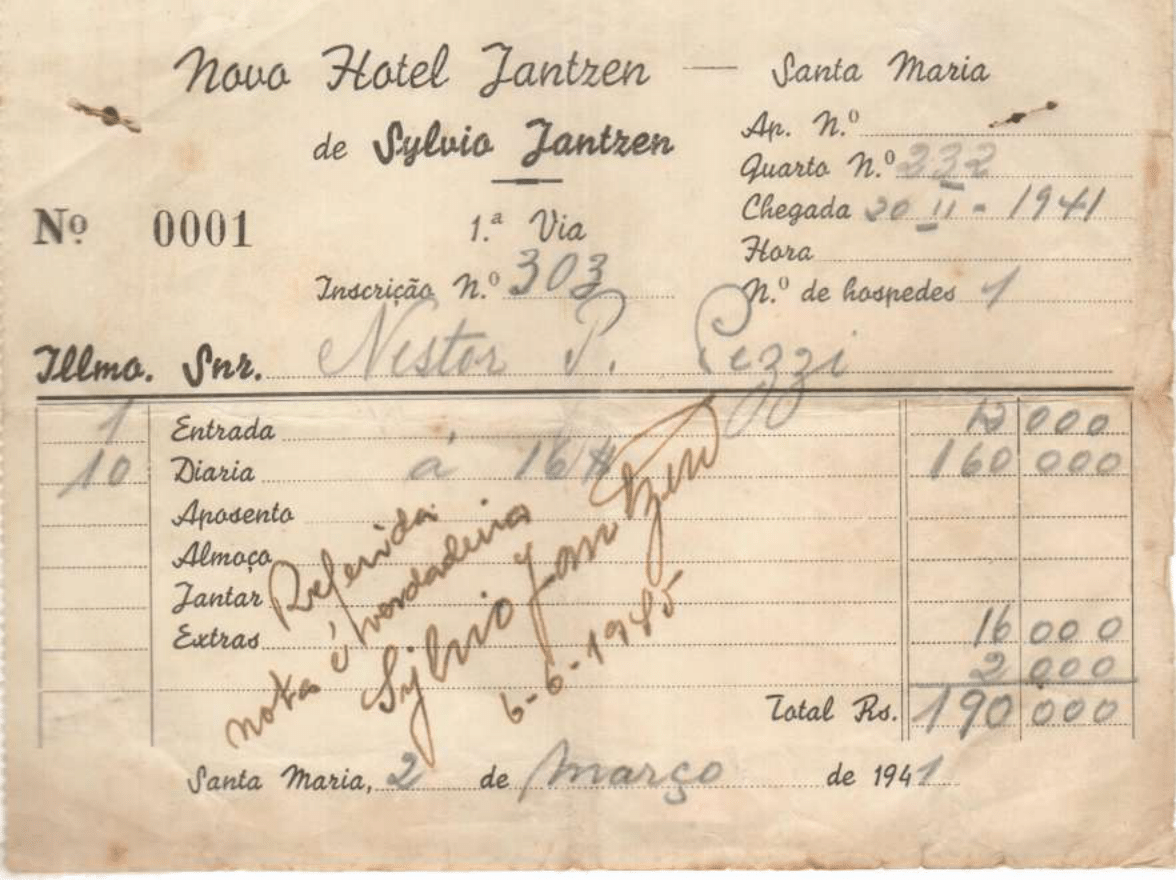 Novo Hotel Jantzen — Santa Maria
de Sylvio Jantzen
Ap. N.º
Quarto N.º 232
Nº 0001
1.ª Via
Chegada 20 II - 1941
Hora
Inscrição N.º 303
N.º de hospedes 1
Illmo. Snr. Nestor P. Pezzi
1 Entrada 12 000
10 Diaria á 16$ 160 000
Aposento
Almoço
Jantar
Extras 16 000
2 000
Total Rs. 190 000
Referida
nota é verdadeira
Sylvio Jantzen
6-6-1985
Santa Maria, 2 de Março de 1941